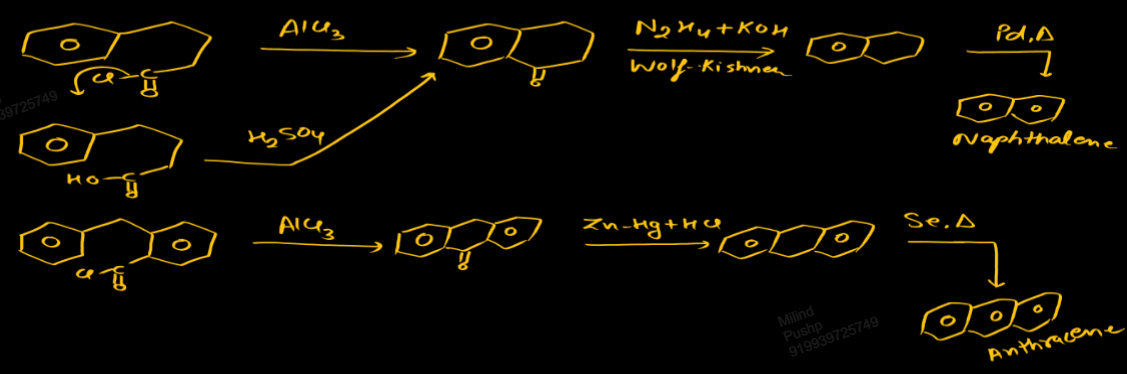 AlCl3
N2H4+KOH
Wolf-Kishner
Pd,Δ
Cl-C
O
O
Naphthalene
39725749
H2SO4
HO-C
O
AlCl3
Zn-Hg+HCl
Se.Δ
Cl-C
O
O
Anthracene
Milind
Pushp
919939725749